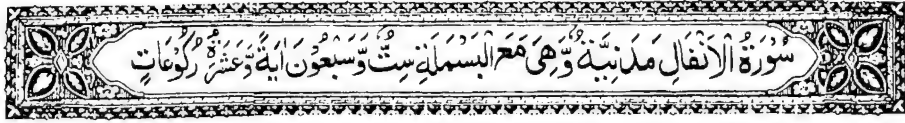 سُوْرَةُ الْاَنْفَالِ مَدَنِيَّةٌ وَّهِیَ مَعَ الْبَسْمَلَةِ سِتٌّ وَّسَبْعُوْنَ اٰيَةً وَّعَشَرَةُ رُكُوْعَاتٍ